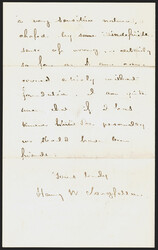 a very sensitive nature,
chafed by some
sense of wrong, - certainly
so far as I am
concerned entirely without
foundation. I am quite
sure that if I had
known him personally
we should have been
friends.
Yours truly
Henry W. Longfellow